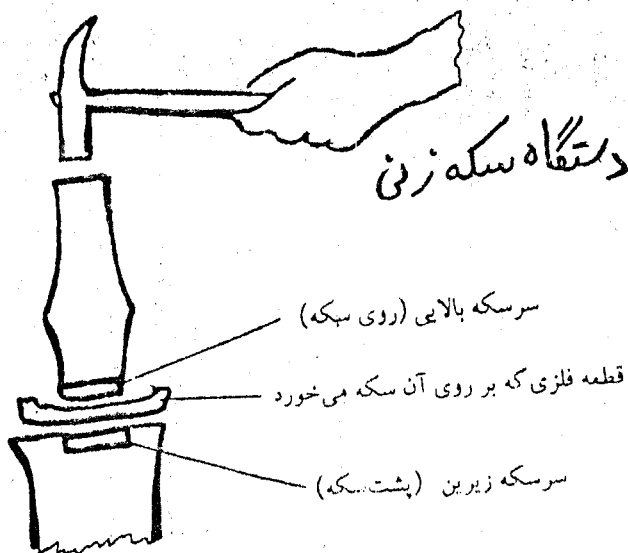 دستگاه سکه زنی
سرسکه بالایی (روی سکه)
قطعه فلزی که بر روی آن سکه می‌خورد
سرسکه زیرین (پشت سکه)